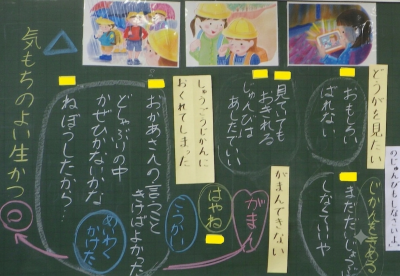 のじゅんびもしなさいよ。
どうがを見たい
おもしろい
ばれない
じかんを
まだだいじょうぶ
しなくていいや
見ていても
おきれる
じゅんびは
あしたでいい
がまんできない
がまん
しゅうごうじかんに
おくれてしまった
はやね
おかあさんの言うこと
きけばよかった
こうかい
どしゃぶりの中
かぜひかないかな
ねぼうしたから…
めいわく
かけた
気もちのよい生かつ